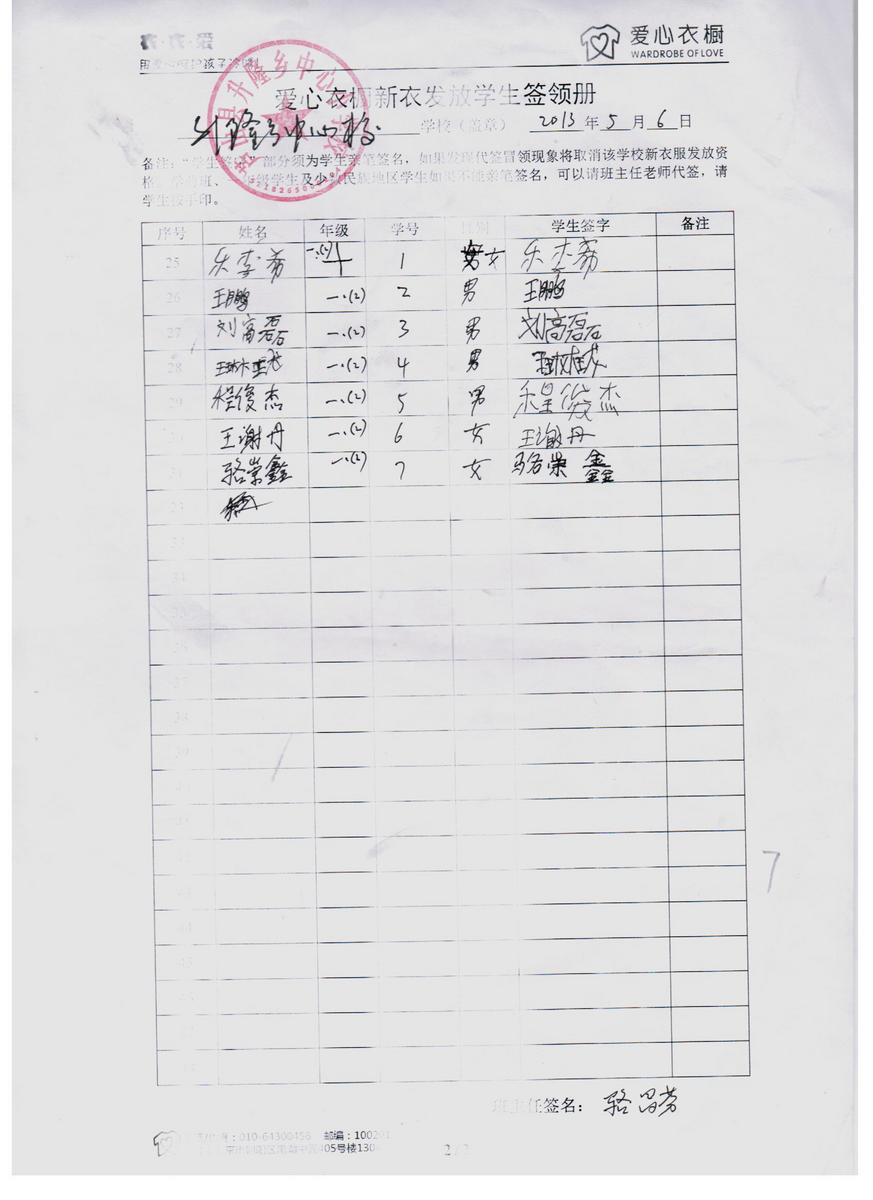 爱心衣橱
WARDROBE OF LOVE
爱心衣橱新衣发放学生签领册
升隆乡中心校 学校（盖章） 2013 年 5 月 6 日
备注："学生签字"部分须为学生亲笔签名，如果发现代签冒领现象将取消该学校新衣服发放资
格。学前班、一年级学生及少数民族地区学生如果不能亲笔签名，可以请班主任老师代签，请
学生按手印。
序号 姓名 年级 学号 性别 学生签字 备注
25 乐李蓊 一.(2) 1 女 乐李蓊
26 王鹏 一.(2) 2 男 王鹏
27 刘高磊 一.(2) 3 男 刘高磊
28 一.(2) 4 男
29 程俊杰 一.(2) 5 男 程俊杰
30 王谢丹 一.(2) 6 女 王谢丹
31 骆崇鑫 一.(2) 7 女 骆崇鑫
23
33
34
35
36
37
38
39
7
班主任签名： 骆昌芳
010-64300456 邮编：100201
405号楼130
2 / 2